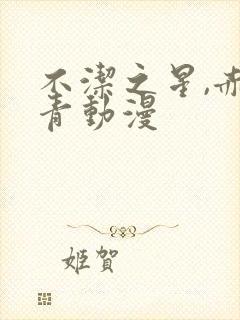 不潔之星,赤
青動漫
姬賀